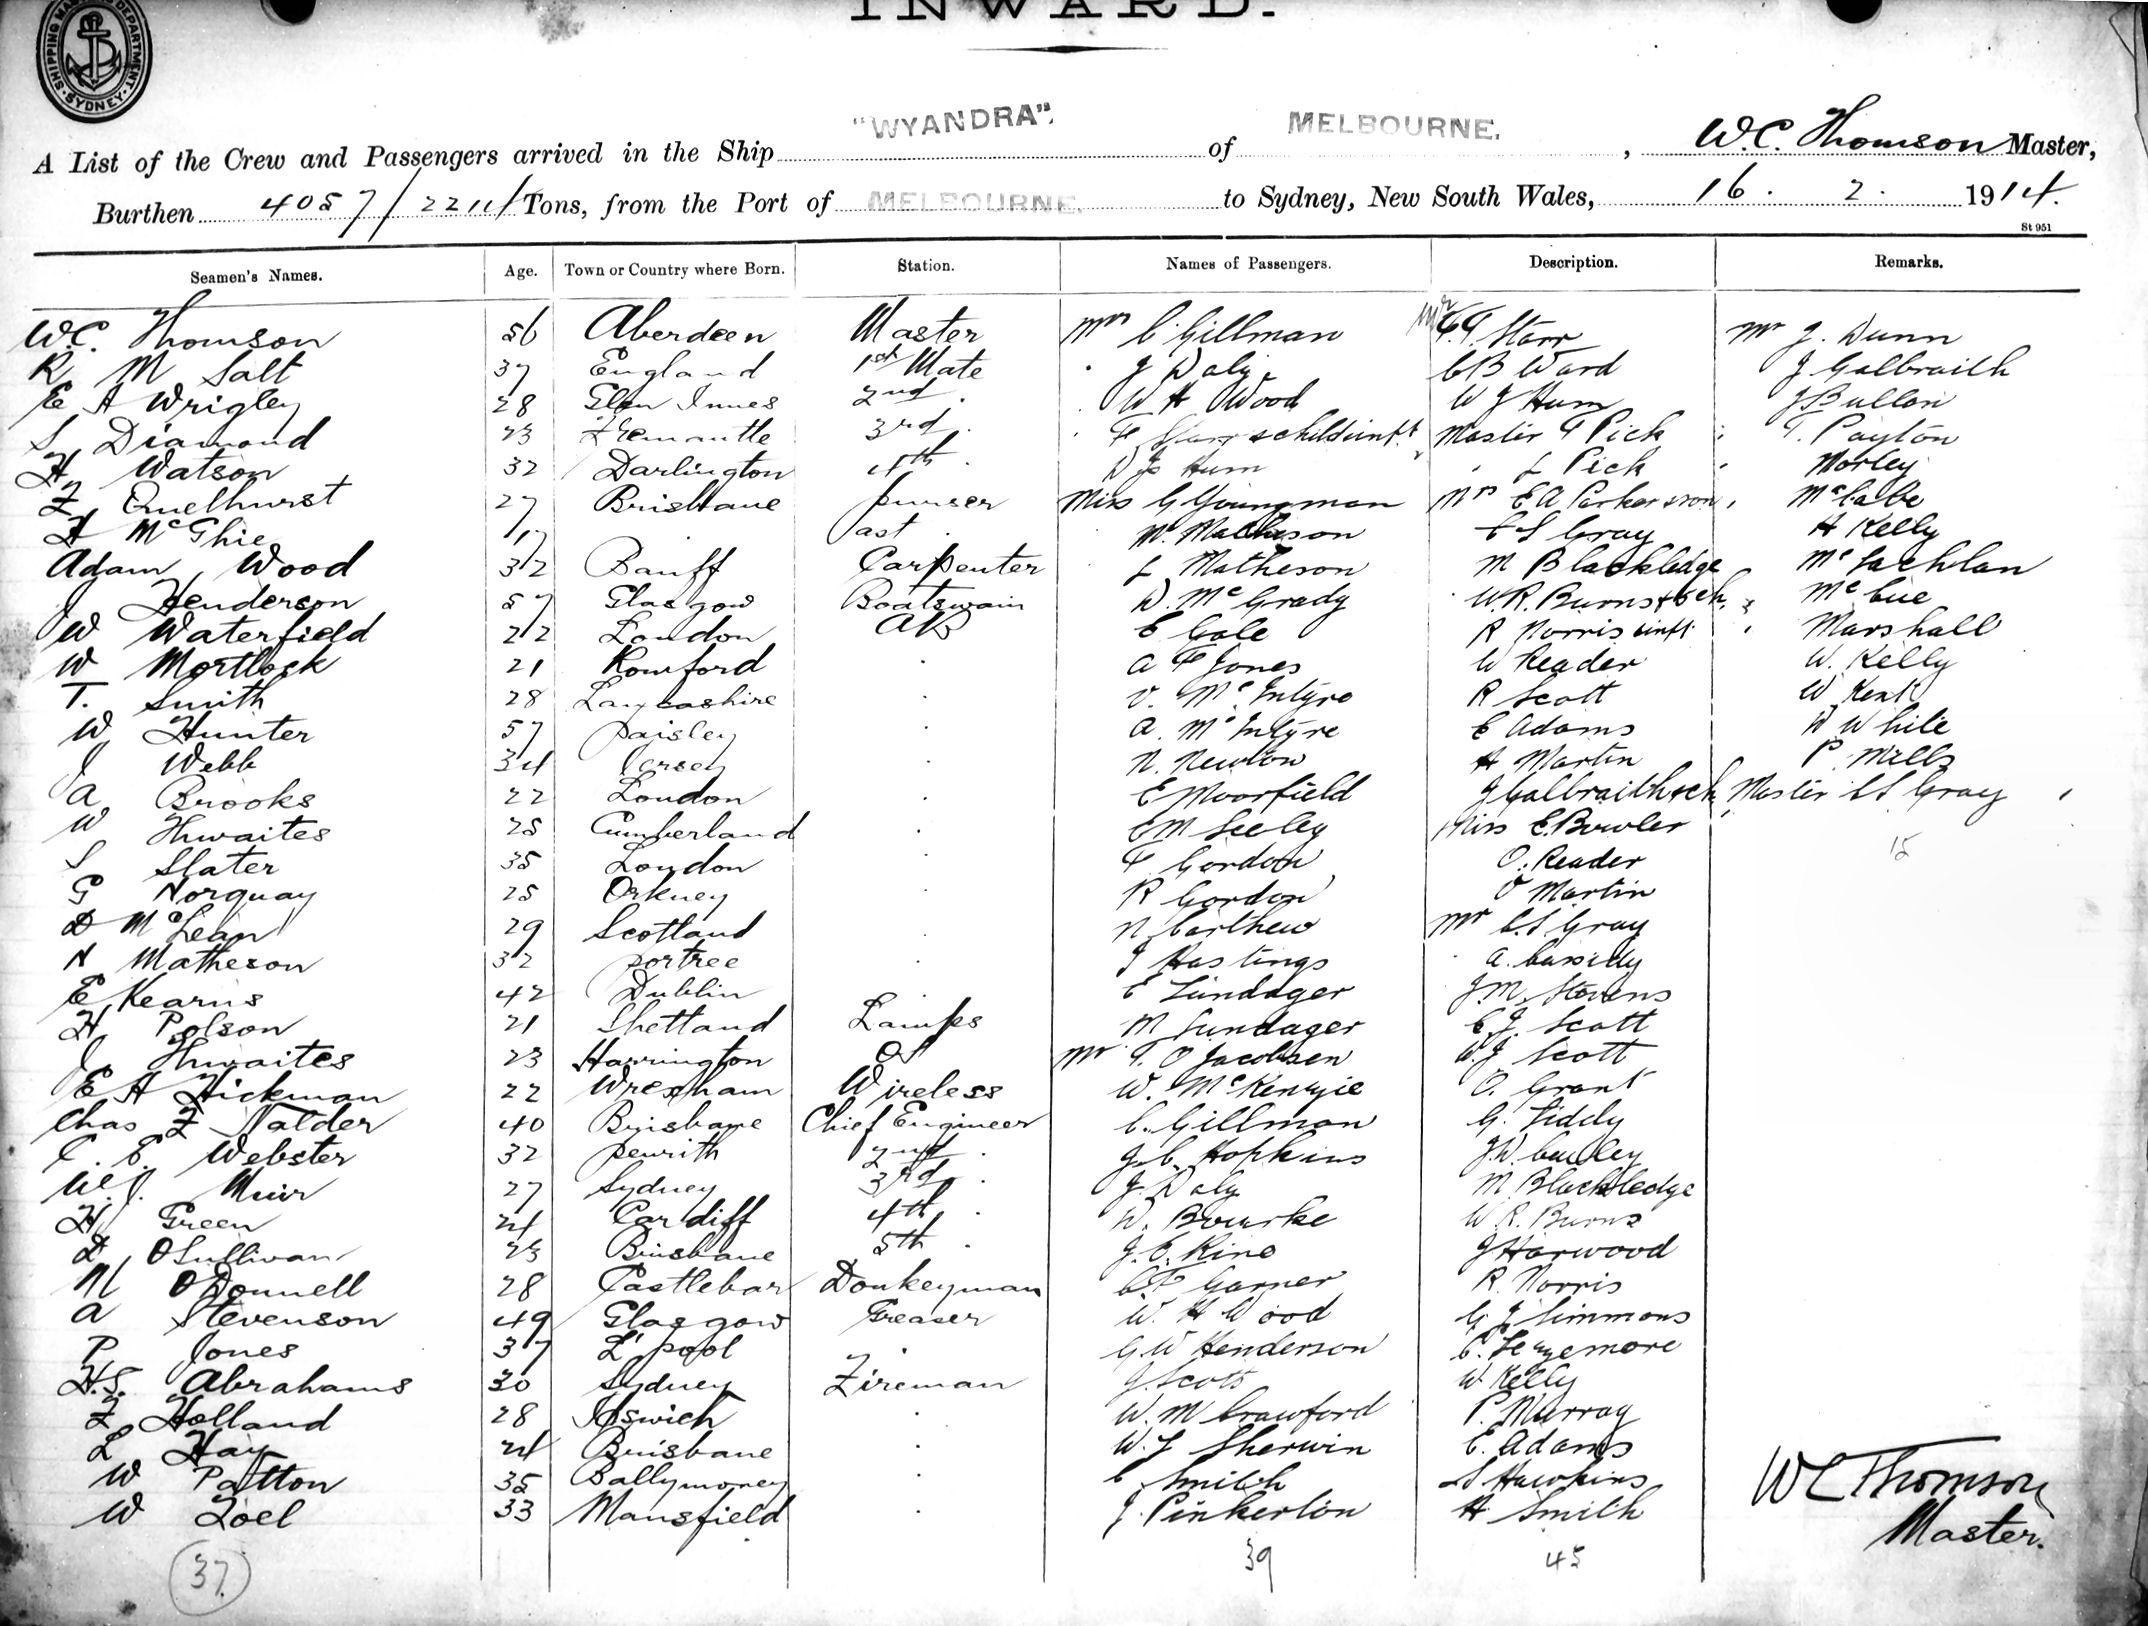 INWARD.
SHIPPING MASTER'S DEPARTMENT
SYDNEY
A List of the Crew and Passengers arrived in the Ship "WYANDRA". of MELBOURNE. , W.C. Thomson Master,
Burthen 4057/2211 Tons, from the Port of MELBOURNE. to Sydney, New South Wales, 16. 2. 1914.
St 951
Seamen's Names. Age. Town or Country where Born. Station. Names of Passengers. Description. Remarks.
W.C. Thomson 56 Aberdeen Master Mrs C Gillman Mr F.T. Starr Mr J. Dunn
R M Salt 37 England 1st Mate " J Daly C B Ward J Galbraith
E A Wrigley 28 Glen Innes 2nd " W H Wood W J Hum J Bullen
S Diamond 23 Fremantle 3rd " F Starr & child & inft Master F Pick T. Payton
H Watson 32 Darlington 4th " D J Hum " L Pick Morley
F Quelhurst 27 Brisbane purser Miss G Youngman Mrs E A Parker & son McCabe
H McGhie 17 . ast . M. Matheson C S Gray H Kelly
Adam Wood 32 Banff Carpenter L Matheson M Blackledge McLachlan
J Henderson 57 Glasgow Boatswain D. McGrady W R. Burns & 5 ch. McCue
W Waterfield 22 London AB E Gale R Norris & inft Marshall
W Mortlock 21 Romford . A F Jones W Reader W. Kelly
T. Smith 28 Lancashire . V. McIntyre R Scott W Kent
W Hunter 57 paisley . A. McIntyre E Adams W White
J Webb 34 Jersey . N. Newton H Martin P. Mills
A Brooks 22 London . E Moorfield J Galbraith & ch Master C S Gray
W Thwaites 25 Cumberland . E M Seeley Miss E. Bowler
15
S Slater 35 London . F Gordon O. Reader
G Norquay 25 Orkney . R Gordon O Martin
D McLean 29 Scotland . N Carthew Mr C.S. Gray
N Matheson 32 portree . J Hastings A. Cassidy
E Kearns 42 Dublin . E Lundager J.M. Stevens
H Polson 21 Shetland Lamps M Lundager E J. Scott
J Thwaites 23 Harrington OS Mr T. O Jacobsen W J Scott
E A Hickman 22 Wrexham Wireless W. McKenzie O. Grant
Chas F Nalder 40 Brisbane Chief Engineer C. Gillman G. Tiddy
C. E. Webster 32 penrith 2nd . J. C. Hopkins J.W.
W J. Muir 27 Sydney 3rd . J. Daly M Blackledge
H Green 24 Cardiff 4th . D. Bourke W R. Burns
D O'Sullivan 23 Brisbane 5th . J. E. King J Harwood
M O'Donnell 28 Castlebar Donkeyman C F Garner R. Norris
A Stevenson 49 Glasgow Greaser W. H Wood G J Simmons
P Jones 37 L'pool . G W Henderson C.
H.S. Abrahams 30 Sydney Fireman J. Scott W Kelly
F Holland 28 Ipswich . W. M Crawford P. Murray
L Hay 24 Brisbane . W. J Sherwin E. Adams
W Patton 35 Ballymoney . C Smith S Hawkins
W Zoel 33 Mansfield . J. Pinkerton H Smith
37. 39 45
W C Thomson
Master.